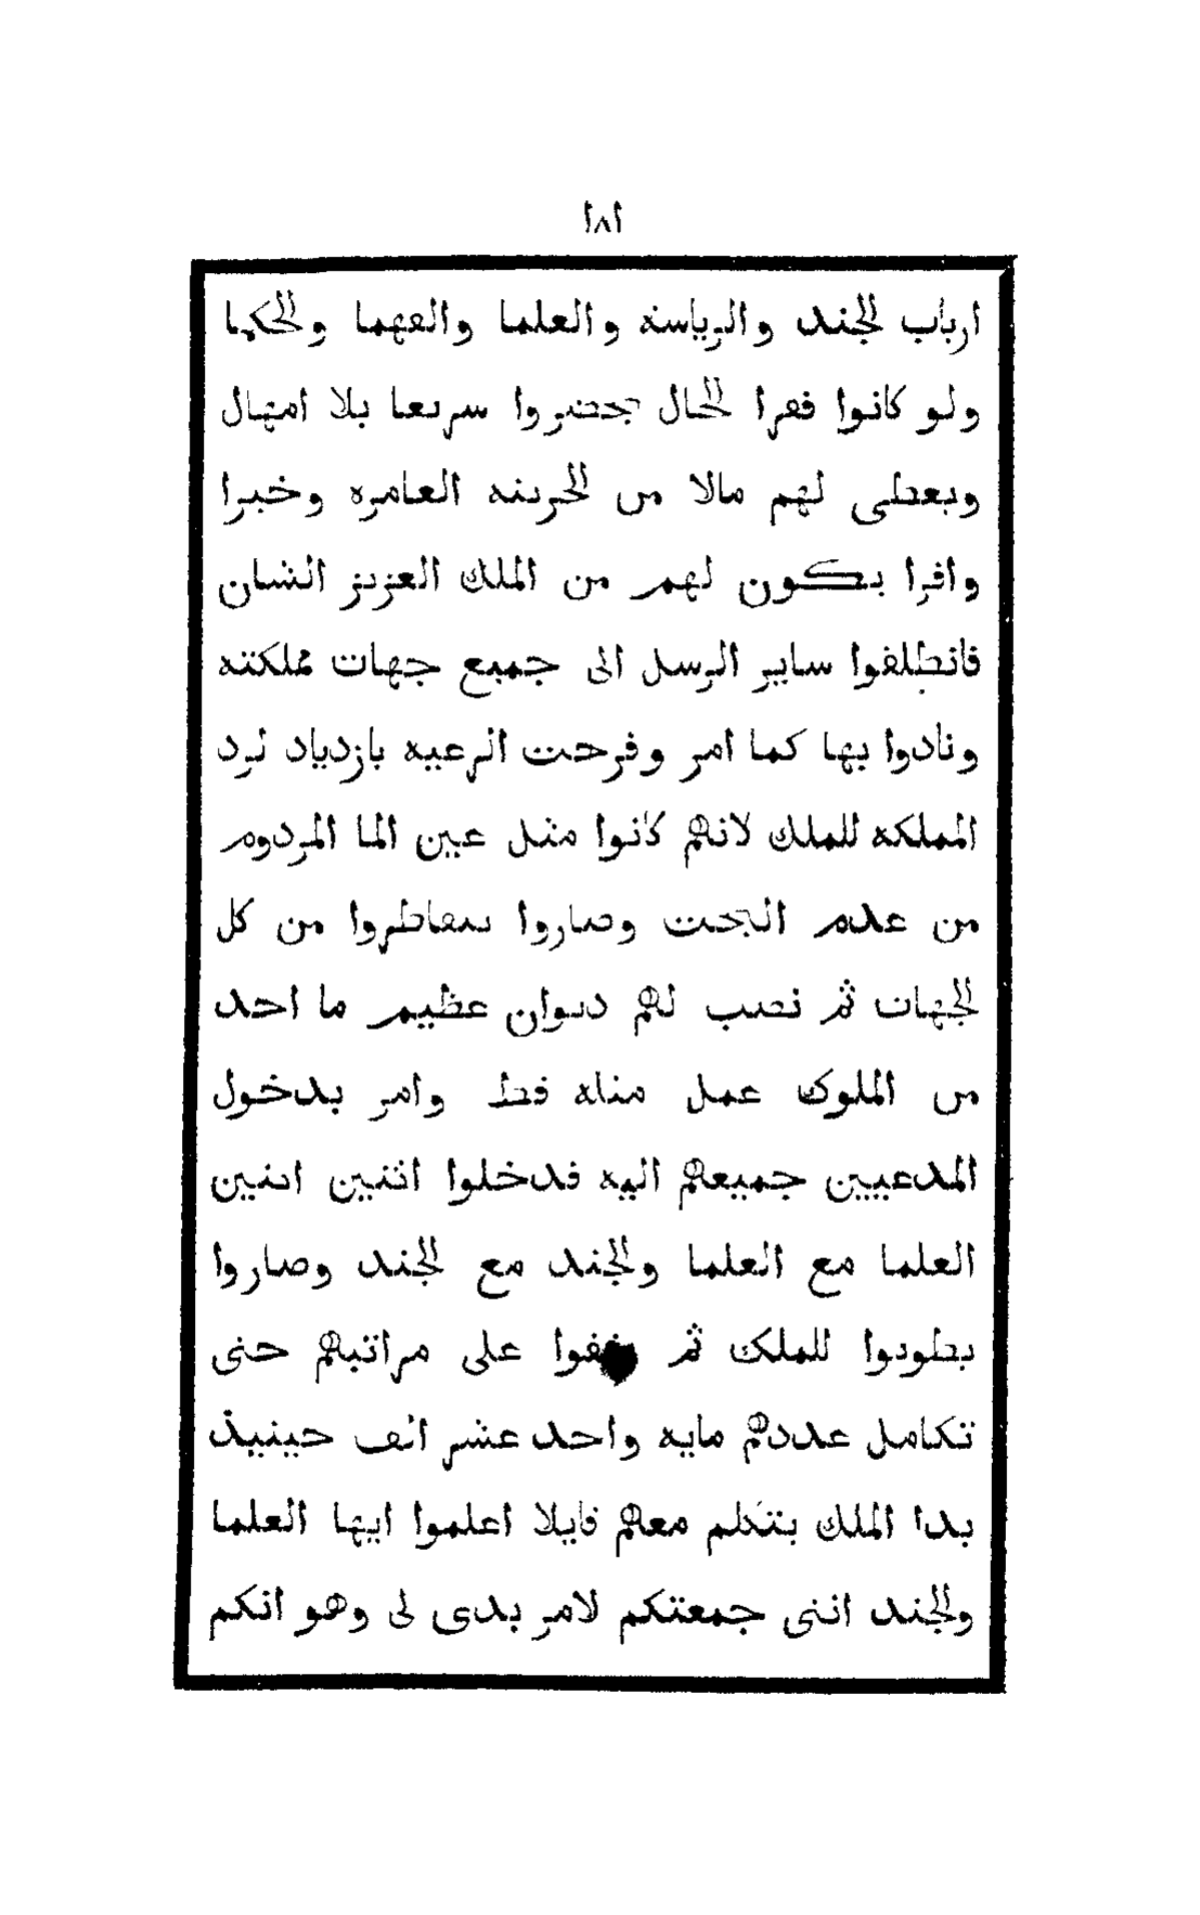 ١٨١
ارباب الجند والرياسه والعلما والفهما والحكما
ولو كانوا فقرا الحال يحضروا سريعا بلا امتهال
ويعطى لهم مالا من الخزينه العامره وخبرا
وافرا يكون لهم من الملك العزيز الشان
فانطلقوا ساير الرسل الى جميع جهات مملكته
ونادوا بها كما امر وفرحت الرعيه بازدياد
المملكه للملك لانهم كانوا مثل عين الما المردوم
من عدم البحث وصاروا يتقاطروا من كل
الجهات ثم نصب لهم ديوان عظيم ما احد
من الملوك عمل مثله قط وامر بدخول
المدعيين جميعهم اليه فدخلوا اثنين اثنين
العلما مع العلما والجند مع الجند وصاروا
يطوبوا للملك ثم يقفوا على مراتبهم حتى
تكامل عددهم مايه واحد عشر الف حينيذ
بدا الملك يتكلم معهم قايلا اعلموا ايها العلما
والجند اننى جمعتكم لامر بدى لى وهو انكم